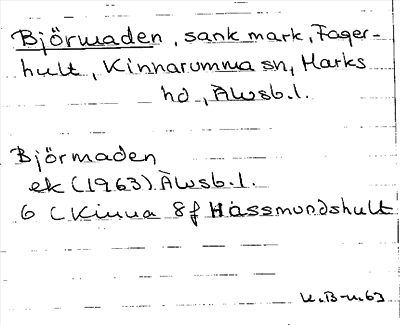 Björmaden, sank mark, Fager-
hult, Kinnarumma sn, Marks
hd, Älvsb.l.
Björmaden
ek (1963) Älvsb.l.
6 C Kinna 8f Hässmundshult
K.B-n.63